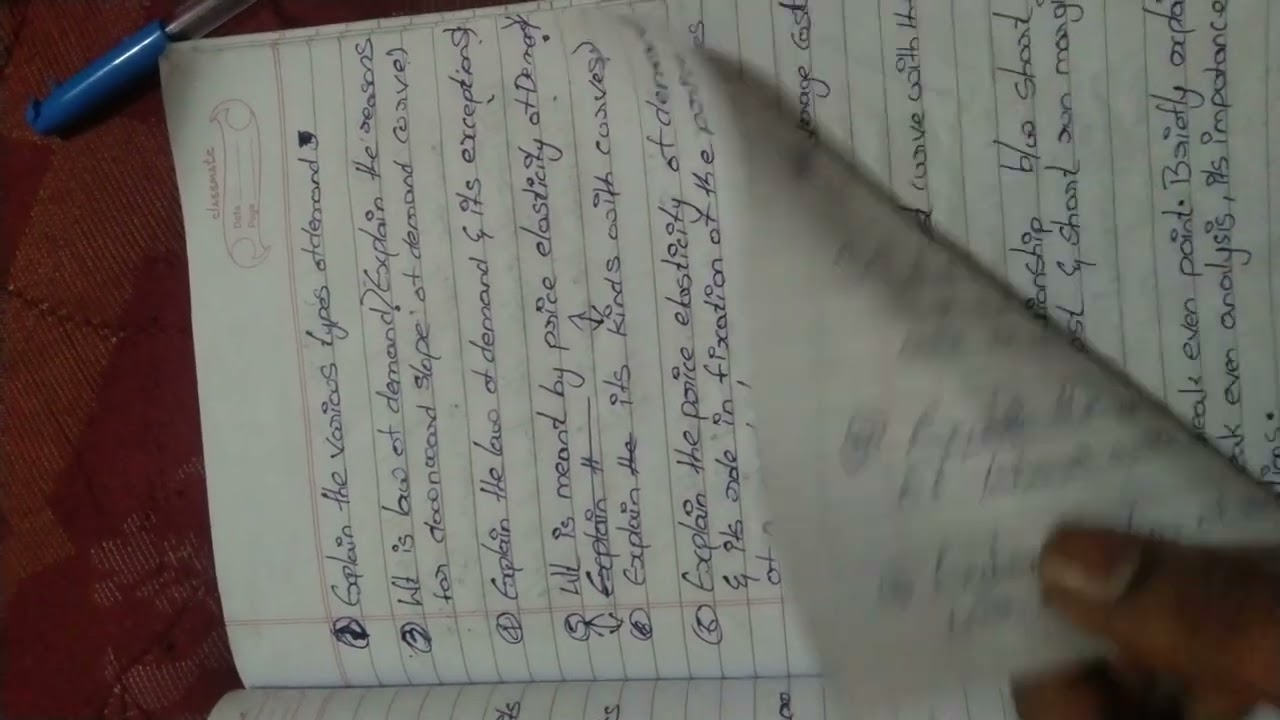 classmate
Date
Page
① Explain the various types of demand
② Wt is law of demand? Explain the reasons
for downward slope of demand curve?
④ Explain the law of demand & its exceptions?
⑤ Wt is meant by price elasticity of Demand?
Explain
⑥ Explain the its kinds with curves?
⑥ Explain the price elasticity of
& its role in fixation of the
of
average cost
curve with th
b/w short
& short run marg
even point. Briefly explai
even analysis, its importance